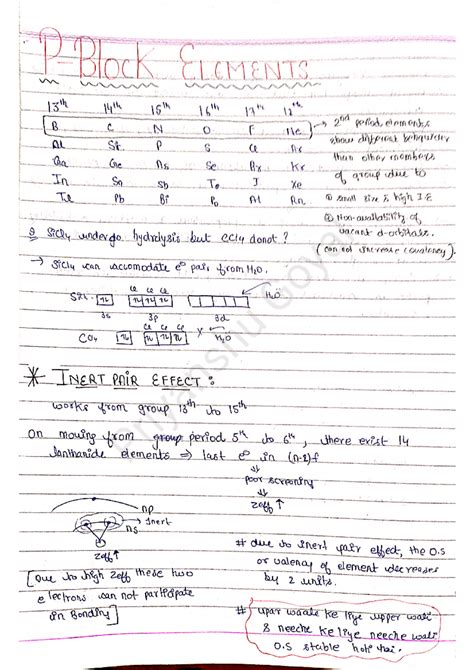 P-BLOCK ELEMENTS
13th 14th 15th 16th 17th 18th
B C N O F He → 2nd period elements
show different behaviour
than other members
of group due to
Al Si P S Cl Ar
Ga Ge As Se Br Kr
In Sn Sb Te I Xe
Tl Pb Bi Po At Rn
① small size & high I.E
② Non-availability of
vacant d-orbitals.
(can not increase covalency)
Q SiCl4 undergo hydrolysis but CCl4 donot?
→ SiCl4 can accomodate e⊖ pair from H2O.
Cl Cl Cl
H2Ö
3s 3p 3d
Cl Cl Cl
CCl4 X H2Ö
* INERT PAIR EFFECT :
works from group 13th to 15th
On moving from group period 5th to 6th, there exist 14
lanthanide elements ⇒ last e⊖ in (n-2)f
poor screening
Zeff ↑
np
Inert
ns
Zeff ↑
[Due to high Zeff these two
electrons can not participate
in Bonding]
# due to inert pair effect, the O.S
or valency of element decreases
by 2 units.
# upar waale ke liye upper wali
& neeche ke liye neeche wali
O.S stable hoti hai.
Priyanshu Goyal